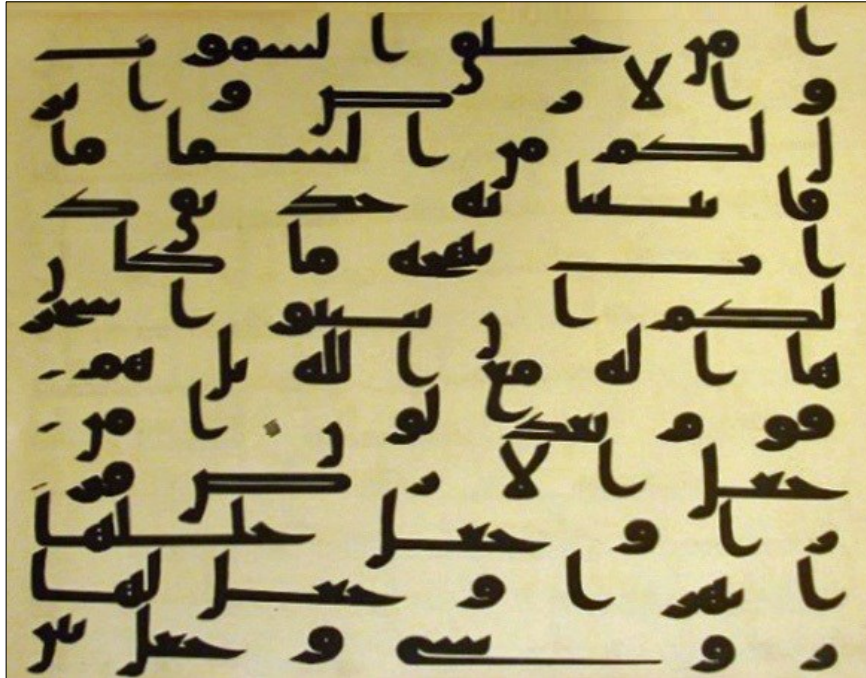 امن خلق السموت
والارض وانز
ل لكم من السما ما
فانبتنا به حدئق ذ
ات بهجه ما كان
لكم ان تنبتوا شجر
ها اله مع الله بل هم
قوم يعدلون امن
جعل الارض قر
را وجعل خللها
انهرا وجعل لها
روسي وجعل بين